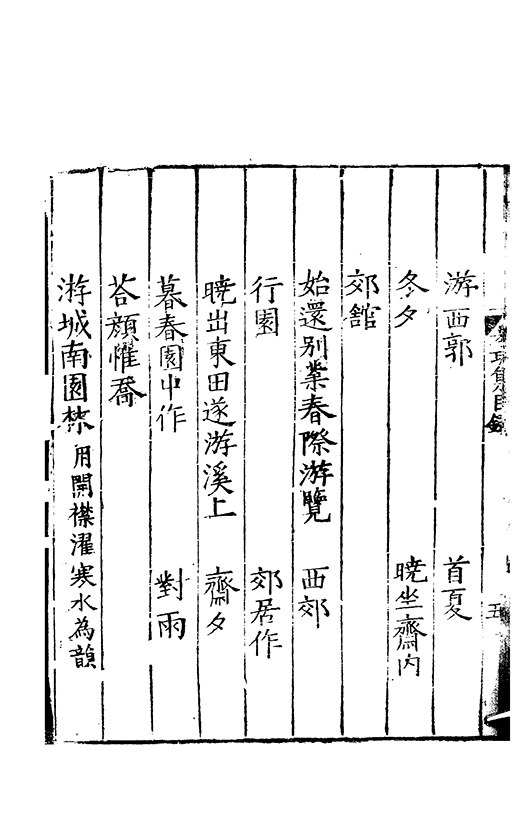 游西郭　首夏
冬夕　曉坐齋內
郊館
始還別業春際游覽　西郊
行園　郊居作
曉出東田遂游溪上　齋夕
暮春園中作　對雨
荅顔惟喬
游城南園林用開襟濯寒水為韻
目錄
五